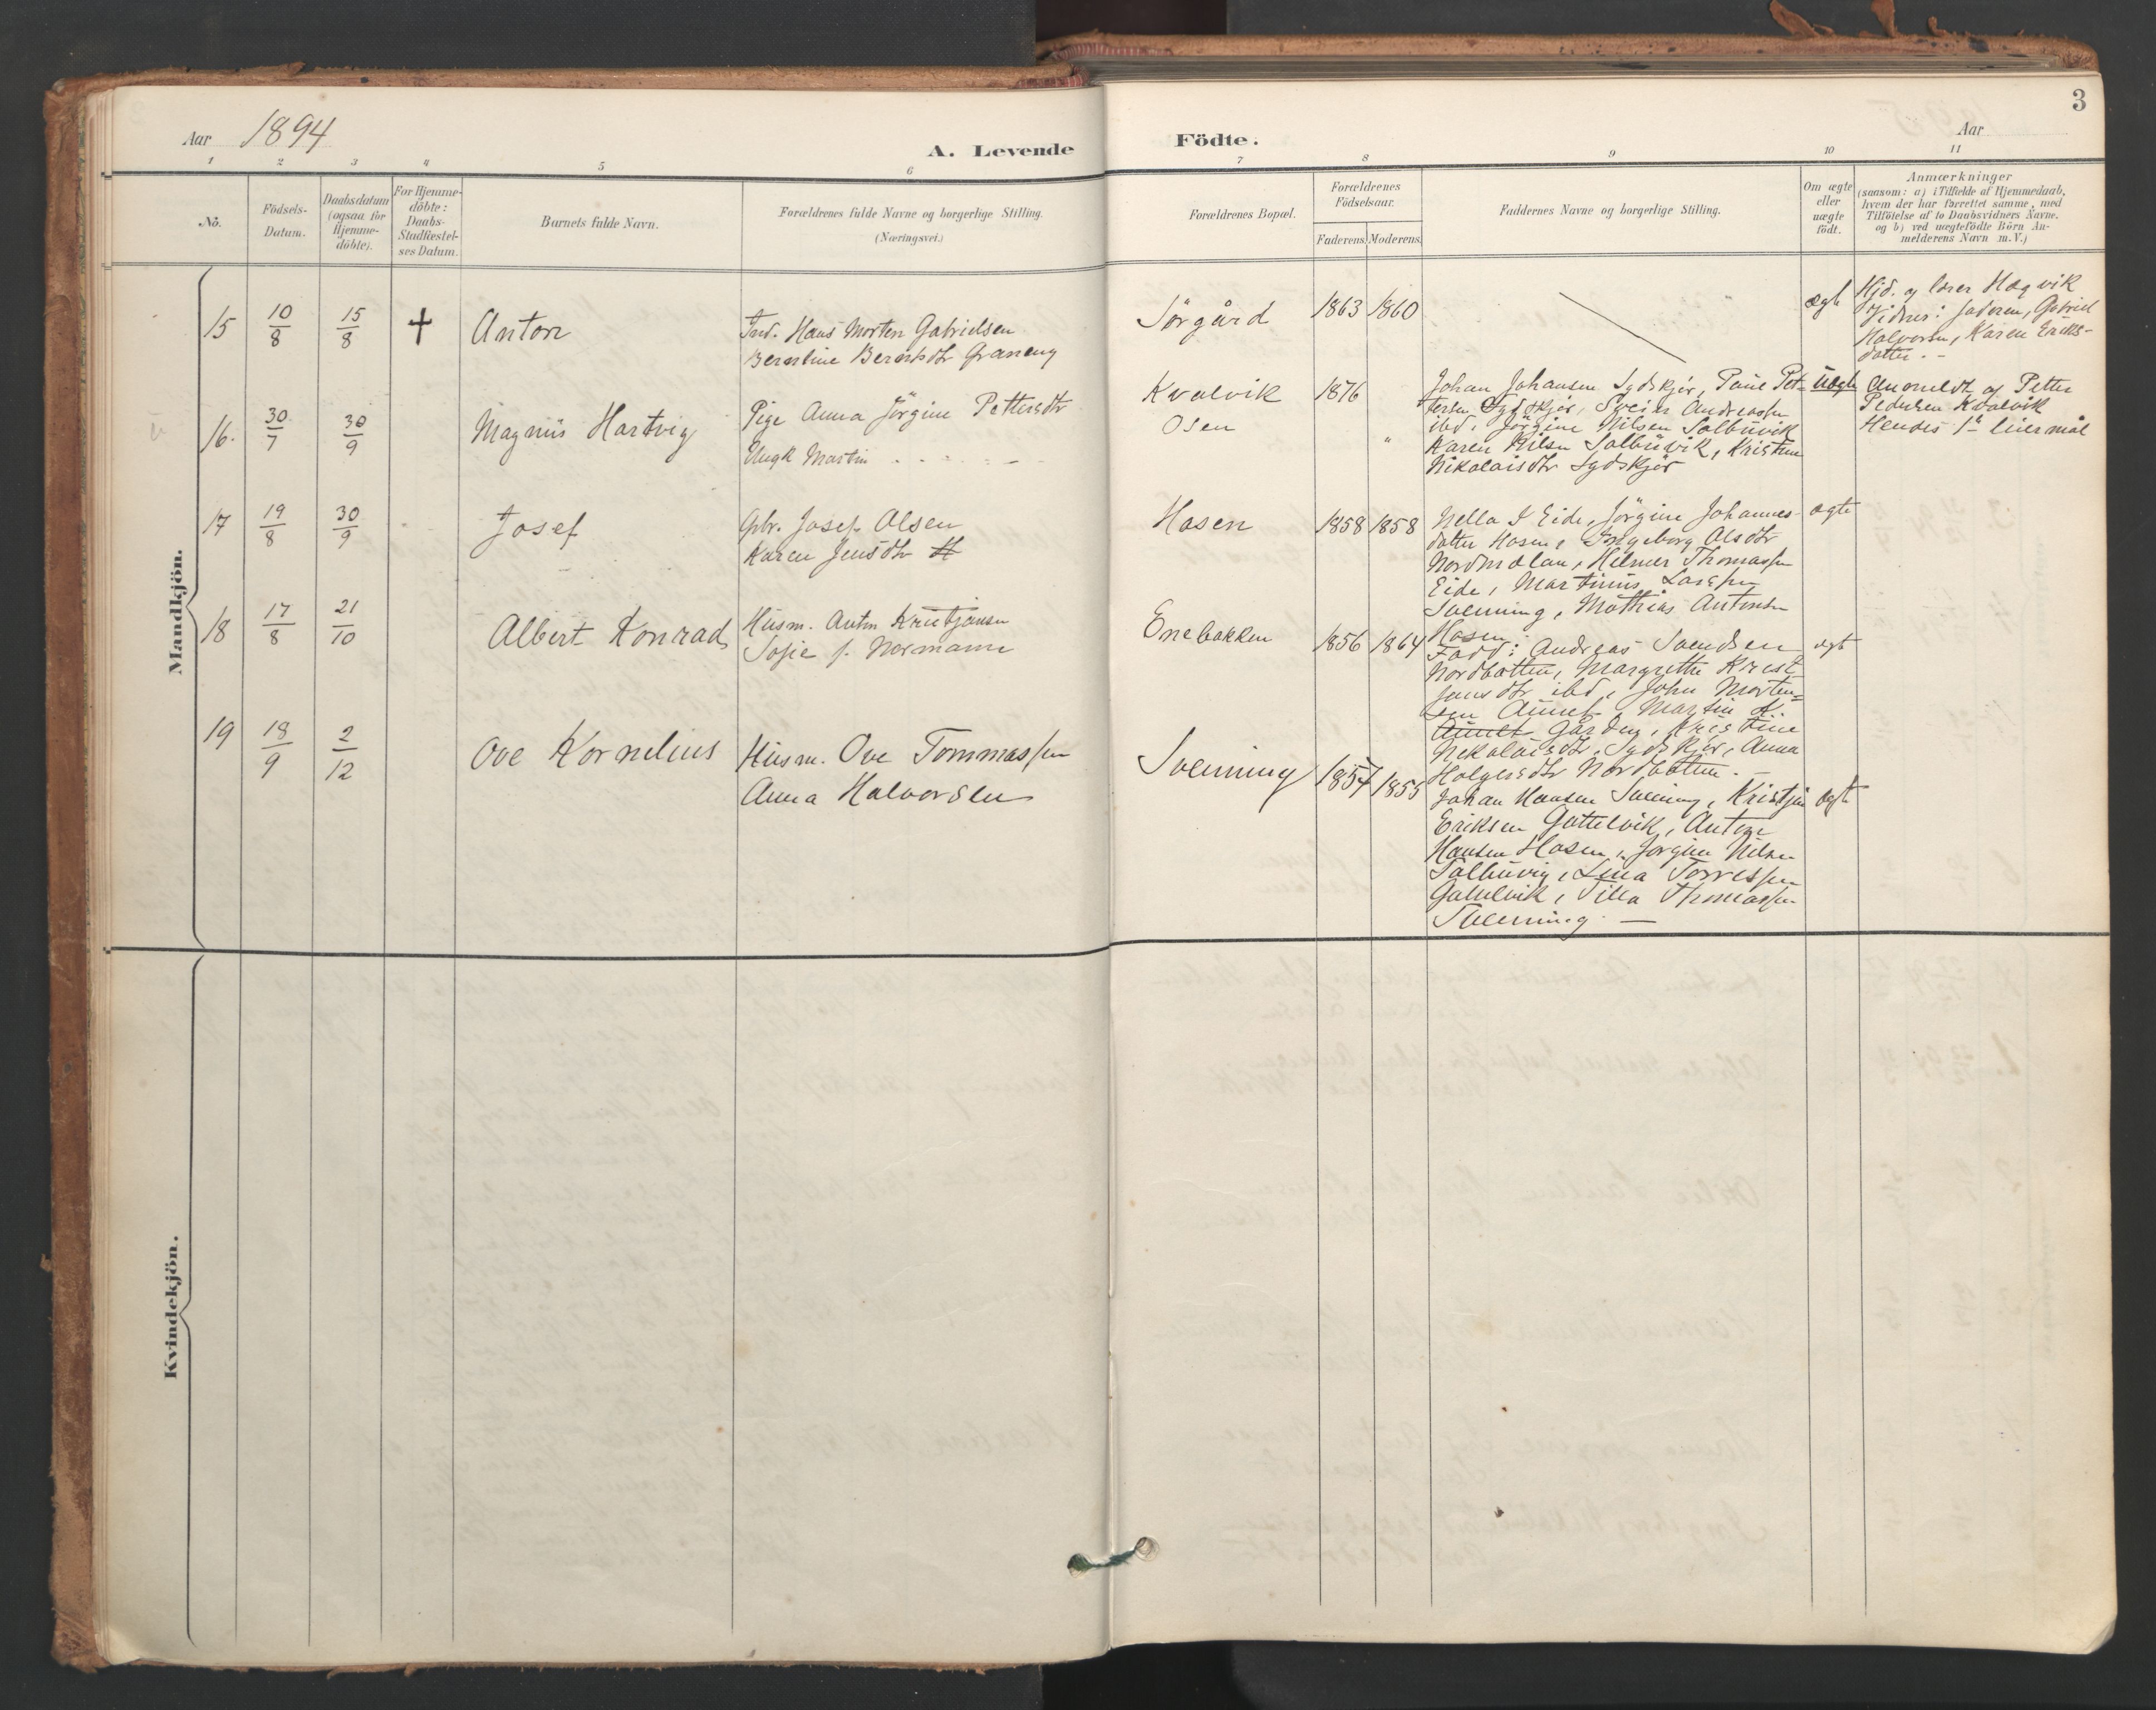 3
Aar 1894
A. Levende Födte.
Aar
1 2 3 4 5 6 7 8 9 10 11
No.
Födsels-
Datum.
Daabsdatum
(ogsaa for
Hjemme-
döbte).
For Hjemme-
döbte:
Daabs-
Stadfæstel-
ses Datum.
Barnets fulde Navn.
Forældrenes fulde Navne og borgerlige Stilling.
(Næringsvei.)
Forældrenes Bopæl.
Forældrenes
Födselsaar.
Faderens. Moderens.
Faddernes Navne og borgerlige Stilling.
Om ægte
eller
uægte
födt.
Anmærkninger
(saasom: a) i Tilfælde af Hjemmedaab,
hvem der har forrettet samme, med
Tilföielse af to Daabsvidners Navne.
og b) ved uægtefödte Börn An-
melderens Navn m.V.)
Mandkjön.
15 10/8 15/8 † Anton
Ind. Hans Morten Gabrielsen
Berntine Berntsdtr
Sörgård 1863 1860
ægte
Hjd. af lærer Hægvik
Vidner: faderen, Gabriel
Halvorsen, Karen Eriks-
datter. -
16. 30/7 30/9 Magnus Hartvig
Pige Anna Jörgine Pettersdtr
Ungk Martin
Kvalvik 1876
Osen "
Johan Johansen Sydskjör, Paul Pet-
tersen Sydskjör, Andreassen
ibd, Jörgine Nilsen Salbuvik
Karen Nilsen Salbuvik, Kristine
Nikolaisdtr Sydskjör
Uægte
Anmeldt af Petter
Pedersen Kvalvik
Hendes 1ste leiermål
17 19/8 30/9 Josef
Gbr. Josef Olsen
Karen Jensdtr
Hosen 1858 1858
Nella J Eide, Jörgine Johannes-
datter Hosen, Ingeborg Olsdtr
Nordmelan, Helmer Thomassen
Eide, Martinus Larssen
Svenning, Mathias Antonsen
Hosen.
ægte
18 17/8 21/10 Albert Konrad
Husm. Anton Kristjansen
Sofie f. Normann
Enebakken 1856 1864
Fadd: Andreas Svendsen
Nordbotten, Margrethe Krist-
jansdtr ibd, John Morten-
sen Aunet, Martin K.
Aunet Gården, Kristine
Nekolaisdtr Sydskjör, Anna
Holgersdtr Nordbotten. -
ægte
19 18/9 2/12 Ove Kornelius
Husm. Ove Tommassen
Anna Halvorsen
Svenning 1857 1855
Johan Hansen Svenning, Kristjan
Eriksen Gåttelvik, Anton
Hansen Hosen, Jörgine Nilsen
Salbuvig, Lina Torressen
Gåttelvik, Tilla Thomassen
Svenning. —
ægte
Kvindekjön.